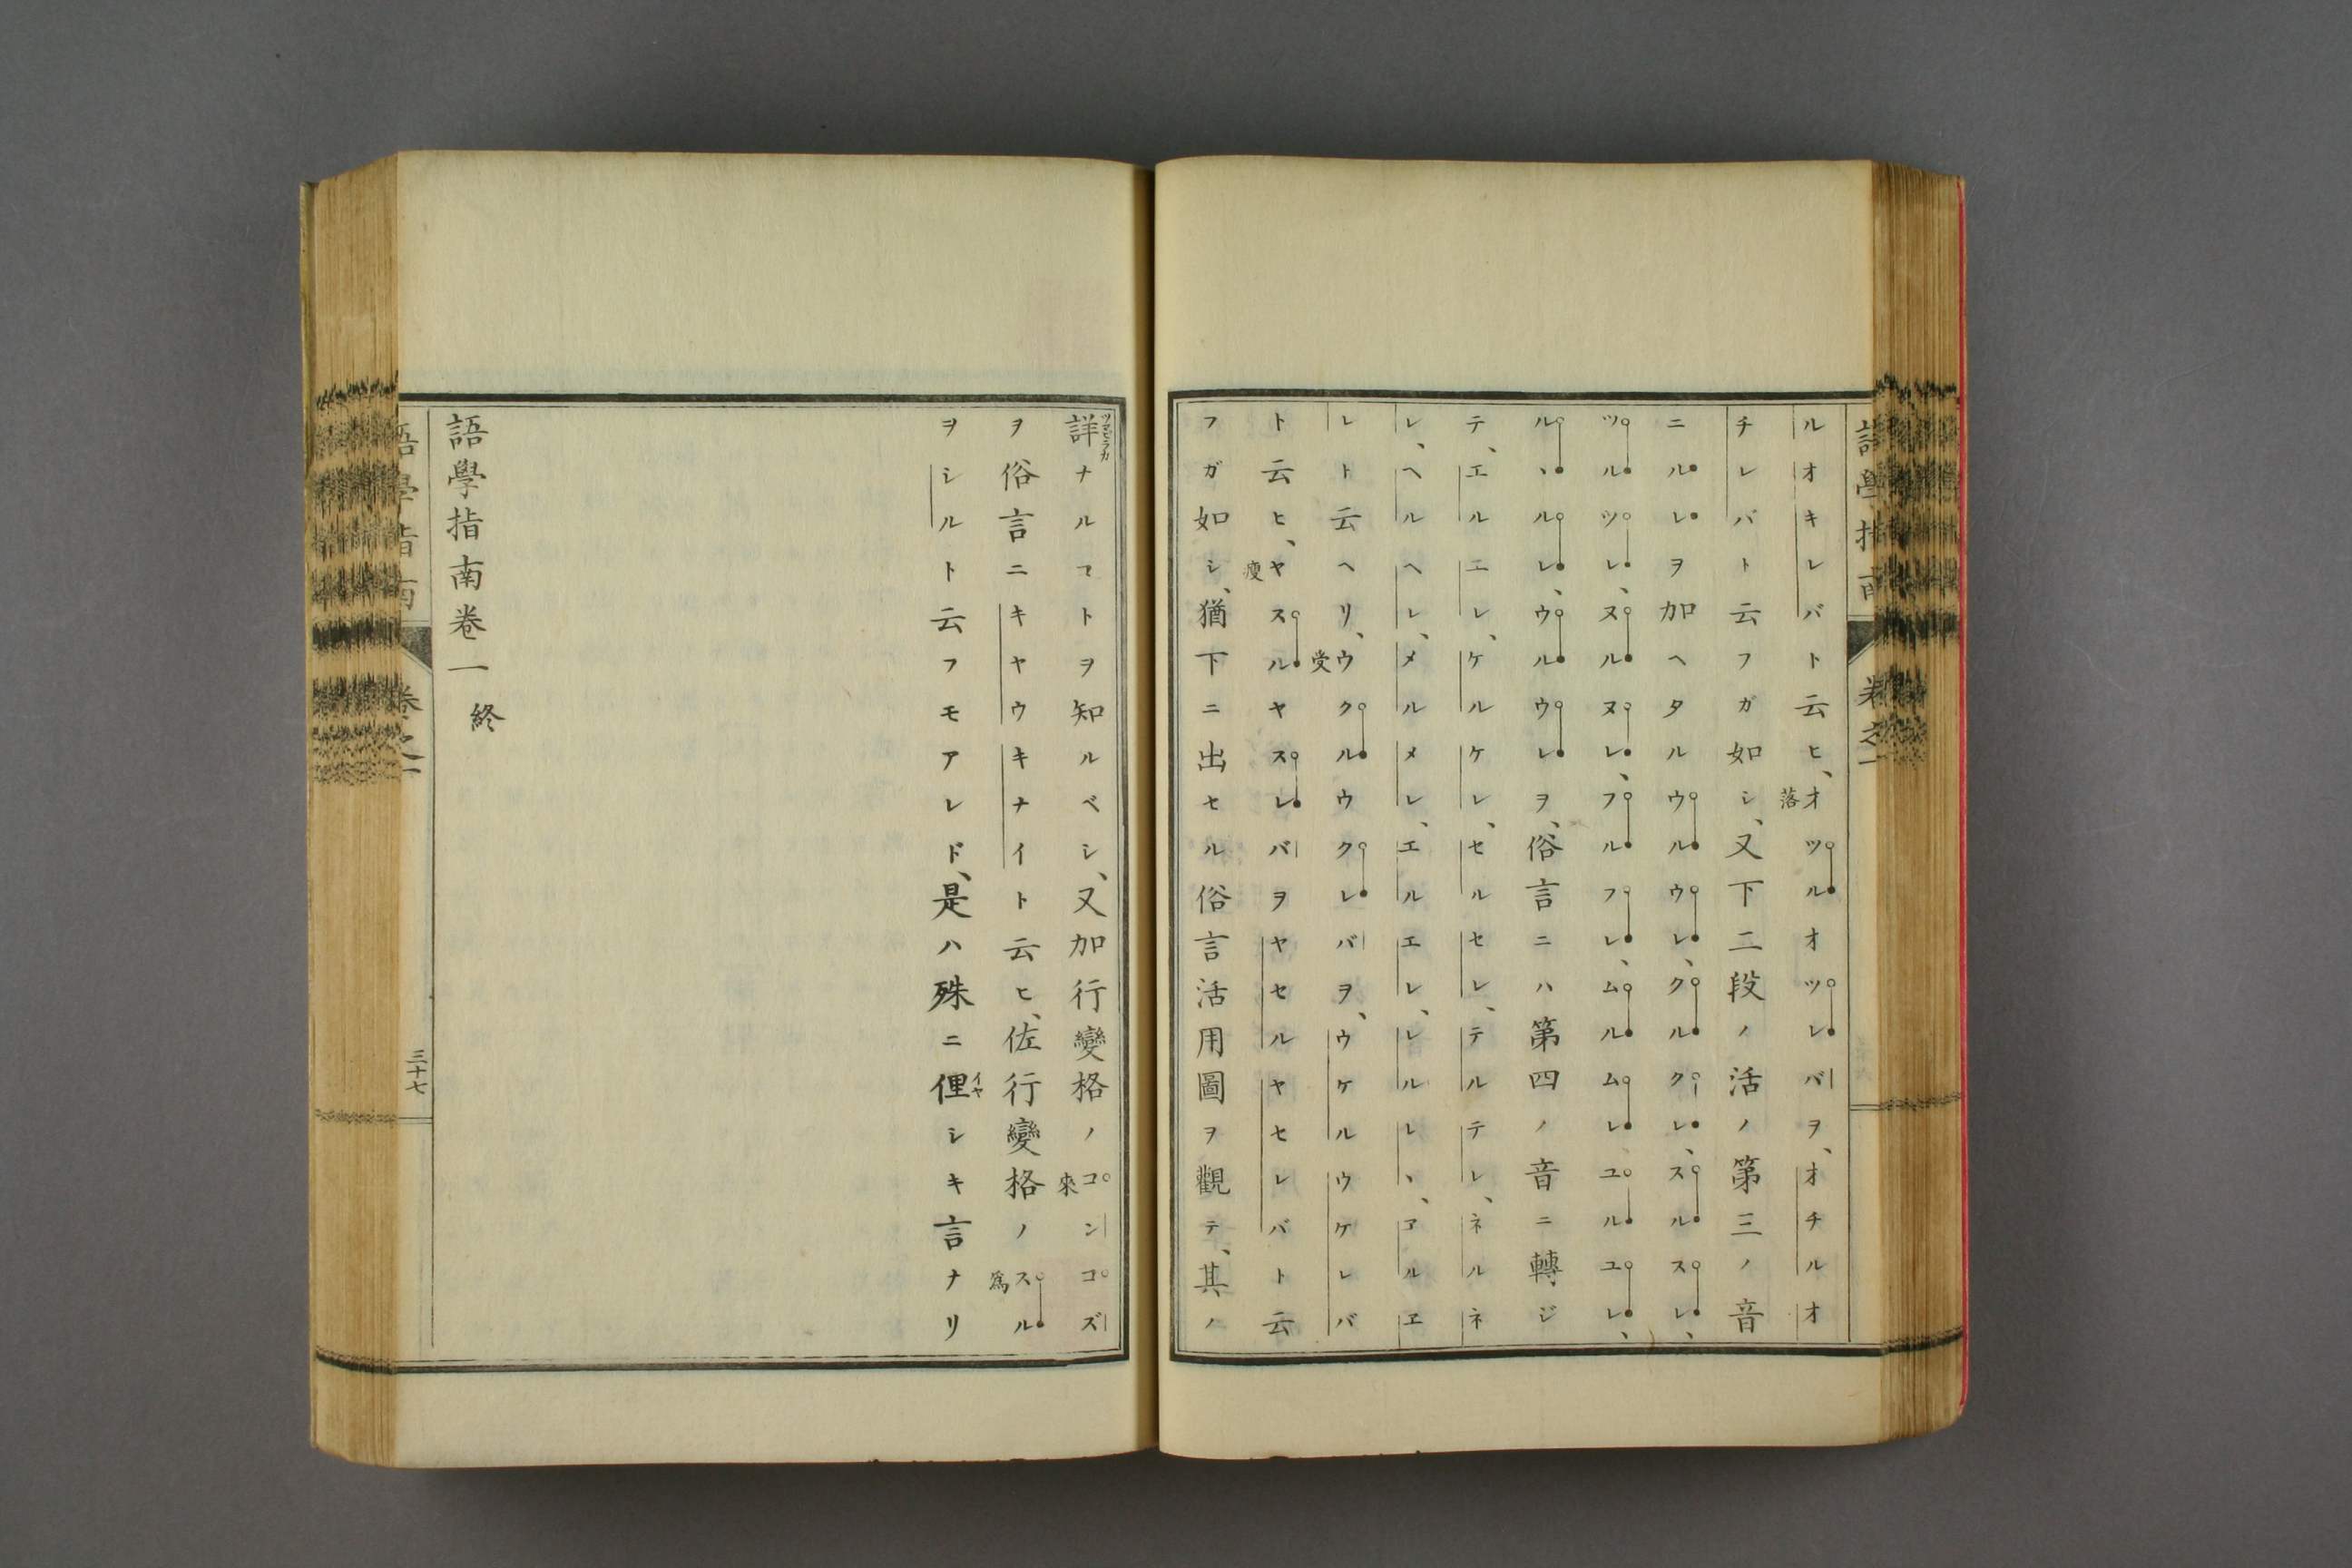 語學指南
卷之一
ルオキレバト云ヒ、オツルオツレバヲ、オチルオ
落
チレバト云フガ如シ、又下二段ノ活ノ第三ノ音
ニルレヲ加ヘタルウルウレ、クルクレ、スルスレ、
ツルツレ、ヌルヌレ、フルフレ、ムルムレユルユレ、
ルヽルレ、ウルウレヲ、俗言ニハ第四ノ音ニ轉ジ
テ、エルエレ、ケルケレ、セルセレ、テルテレ、ネルネ
レ、ヘルヘレ、メルメレ、エルエレ、レルレヽ、ヱルヱ
レト云ヘリ、ウクルウクレバヲ、ウケルウケレバ
受
ト云ヒ、ヤスルヤスレバヲヤセルヤセレバト云
瘦
フガ如シ、猶下ニ出セル俗言活用圖ヲ觀テ、其ノ
詳ナルヿトヲ知ルベシ、又加行變格ノコンコズ
ツマビラカ
來
ヲ俗言ニキヤウキナイト云ヒ、佐行變格ノスル
爲
ヲシルト云フモアレド、是ハ殊ニ俚シキ言ナリ
イヤ
語學指南卷一終
語學指南
卷之一
三十七